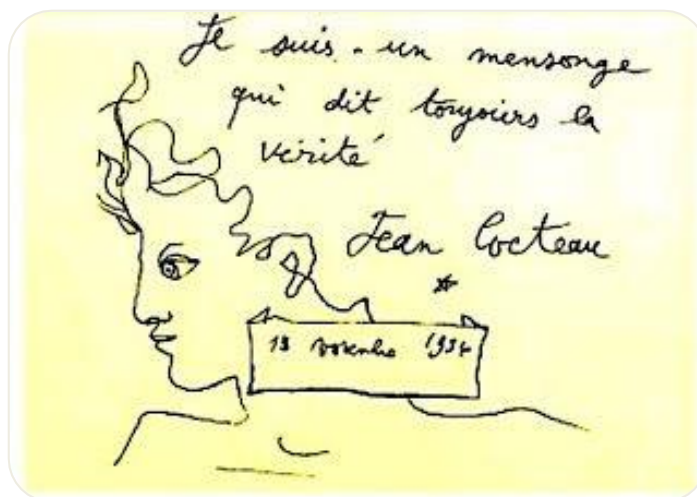 Je suis - un mensonge
qui dit toujours la
vérité
Jean Cocteau
13 novembre 193